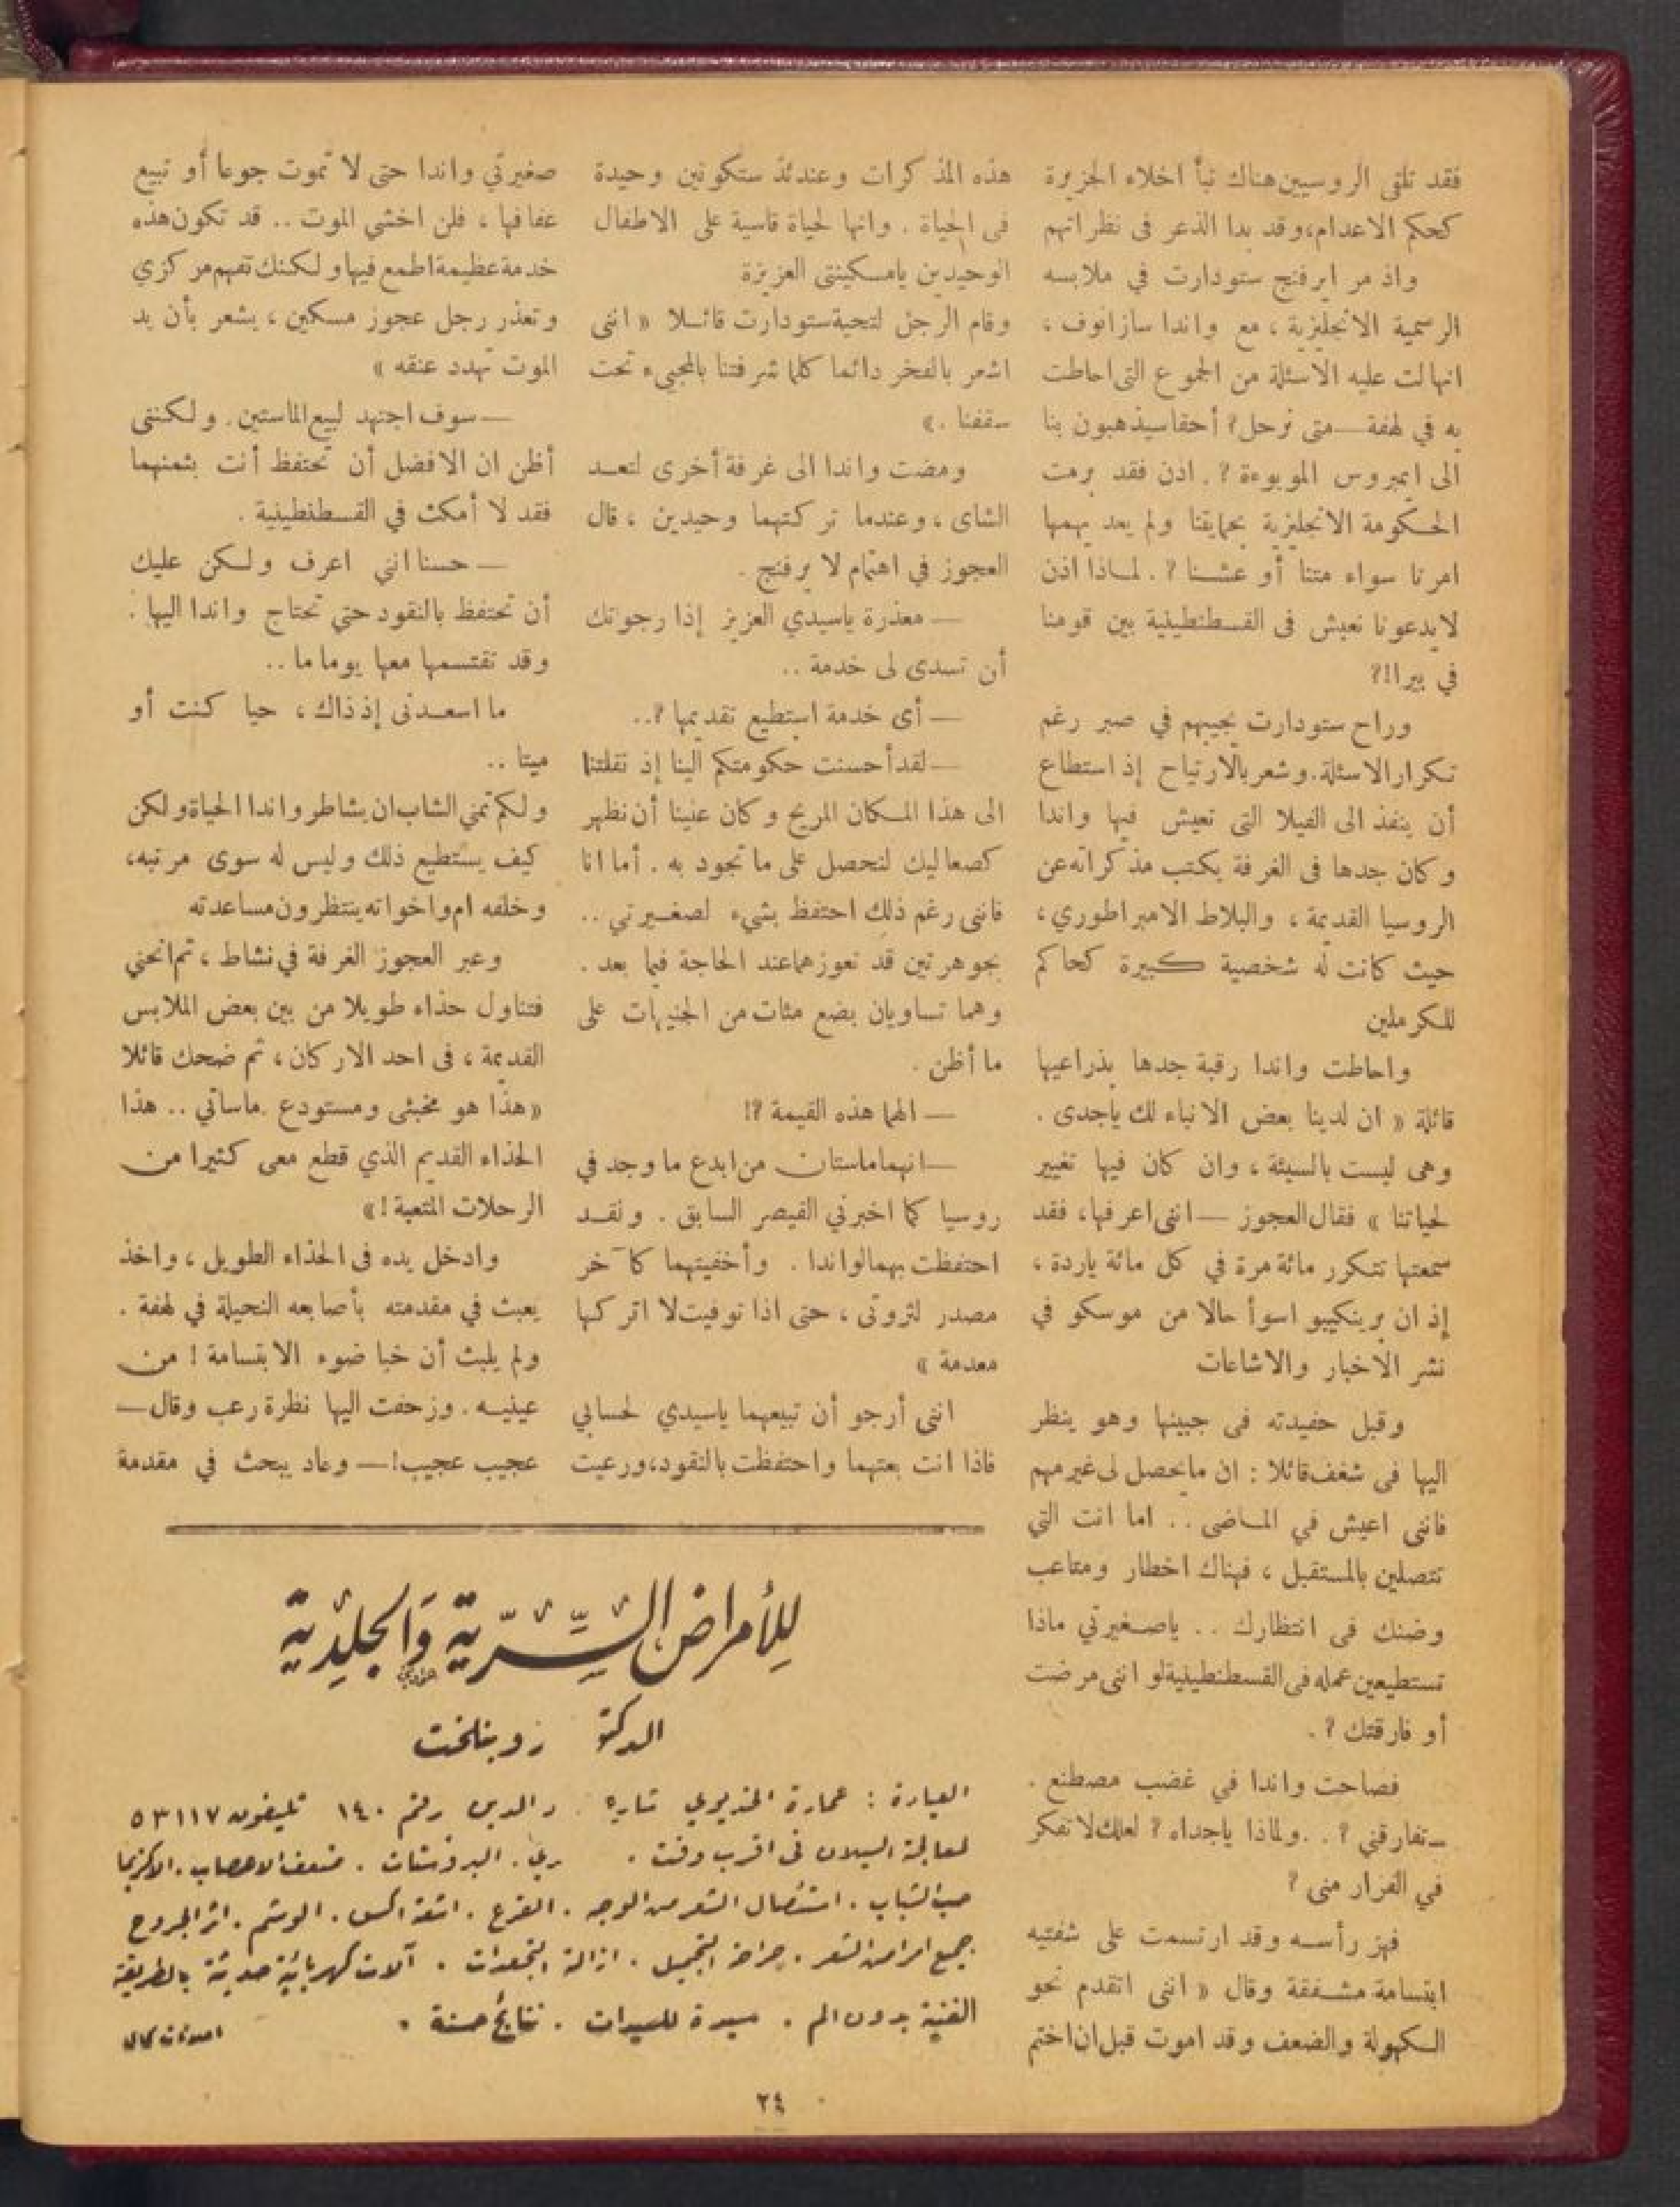 فقد تلقى الروسيين هناك نبأ اخلاء الجزيرة
كحكم الاعدام، وقد بدا الذعر فى نظراتهم
واذ مر ايرفنج ستودارت في ملابسه
الرسمية الانجليزية ، مع واندا سازانوف ،
انهالت عليه الاسئلة من الجموع التى احاطت
به في لهفة — متى نرحل ؟ أحقا سيذهبون بنا
الى ايمبروس الموبوءة ؟ . اذن فقد برمت
الحكومة الانجليزية بحمايتنا ولم يعد يهمها
امرنا سواء متنا أو عشنا ؟ . لماذا اذن
لايدعونا نعيش فى القسطنطينية بين قومنا
في بيرا !؟
وراح ستودارت يجيبهم في صبر رغم
تكرار الاسئلة . وشعر بالارتياح إذ استطاع
أن ينفذ الى الفيلا التى تعيش فيها واندا
وكان جدها فى الغرفة يكتب مذكراته عن
الروسيا القديمة ، والبلاط الامبراطوري ،
حيث كانت له شخصية كبيرة كحاكم
للكرملين
واحاطت واندا رقبة جدها بذراعيها
قائلة « ان لدينا بعض الانباء لك ياجدى .
وهى ليست بالسيئة ، وان كان فيها تغيير
لحياتنا » فقال العجوز — اننى اعرفها ، فقد
سمعتها تتكرر مائة مرة في كل مائة ياردة ،
إذ ان برينكيبو اسوأ حالا من موسكو في
نشر الاخبار والاشاعات
وقبل حفيدته فى جبينها وهو ينظر
اليها فى شغف قائلا : ان مايحصل لى غير مهم
فاننى اعيش في الماضى . . اما انت التي
تتصلين بالمستقبل ، فهناك اخطار ومتاعب
وضنك فى انتظارك . . ياصغيرتي ماذا
تستطيعين عمله فى القسطنطينية لو اننى مرضت
أو فارقتك ؟ .
فصاحت واندا في غضب مصطنع .
— تفارقنى ؟ . . ولماذا ياجداه ؟ لعلك لا تفكر
في الفرار منى ?
فهز رأسه وقد ارتسمت على شفتيه
ابتسامة مشفقة وقال « اننى اتقدم نحو
الكهولة والضعف وقد اموت قبل ان اختم
هذه المذكرات وعندئذ ستكونين وحيدة
فى الحياة . وانها لحياة قاسية على الاطفال
الوحيدين يامسكينتى العزيزة
وقام الرجل لتحية ستودارت قائلا « اننى
اشعر بالفخر دائما كلما شرفتنا بالمجيء تحت
سقفنا . »
ومضت واندا الى غرفة أخرى لتعد
الشاى ، وعندما تركتهما وحيدين ، قال
العجوز في اهتمام لا يرفنج .
— معذرة ياسيدي العزيز إذا رجوتك
أن تسدى لى خدمة ..
— أى خدمة استطيع تقديمها ؟..
— لقد أحسنت حكومتكم الينا إذ نقلتنا
الى هذا المكان المريح وكان علينا أن نظهر
كصعاليك لنحصل على ما تجود به . أما انا
فاننى رغم ذلك احتفظ بشيء لصغيرتي ..
بجوهرتين قد تعوزهما عند الحاجة فيما بعد .
وهما تساويان بضع مئات من الجنيهات على
ما أظن .
— الهما هذه القيمة ؟!
— انهما ماستان من ابدع ما وجد في
روسيا كما اخبرني القيصر السابق . ولقد
احتفظت بهما لواندا . وأخفيتهما كآخر
مصدر لثروتى ، حتى اذا توفيت لا اتركها
معدمة »
اننى أرجو أن تبيعهما ياسيدي لحسابي
فاذا انت بعتهما واحتفظت بالنقود ، ورعيت
صغيرتي واندا حتى لا تموت جوعا أو تبيع
عفافها ، فلن اخشي الموت .. قد تكون هذه
خدمة عظيمة اطمع فيها ولكنك تفهم مركزي
وتعذر رجل عجوز مسكين ، يشعر بأن يد
الموت تهدد عنقه »
— سوف اجتهد لبيع الماستين . ولكننى
أظن ان الافضل أن تحتفظ أنت بثمنهما
فقد لا أمكث في القسطنطينية .
— حسنا انني اعرف ولكن عليك
أن تحتفظ بالنقود حتي تحتاج واندا اليها .
وقد تقتسمها معها يوما ما ..
ما اسعدنى إذ ذاك ، حيا كنت أو
ميتا ..
ولكم تمني الشاب ان يشاطر واندا الحياة ولكن
كيف يستطيع ذلك وليس له سوى مرتبه ،
وخلفه ام واخواته ينتظرون مساعدته
وعبر العجوز الغرفة في نشاط ، ثم انحني
فتناول حذاء طويلا من بين بعض الملابس
القديمة ، فى احد الاركان ، ثم ضحك قائلا
« هذا هو مخبئى ومستودع ماساتي .. هذا
الحذاء القديم الذي قطع معى كثيرا من
الرحلات المتعبة ! »
وادخل يده فى الحذاء الطويل ، واخذ
يعبث في مقدمته بأصابعه النحيلة في لهفة .
ولم يلبث أن خبا ضوء الابتسامة ! من
عينيه . وزحفت اليها نظرة رعب وقال —
عجيب عجيب ! — وعاد يبحث في مقدمة
للأمراض السِّرّية وَالجلدية
الدكتور زوبنلخت
العيادة : عمارة الخديوي شارع . . الدين رقم ١٤٠ تليفون ٥٣١١٧
لمعالجة السيلان فى اقرب وقت . . البروستات . ضعف الاعصاب . الاكزيما
حب الشباب . استئصال الشعر من الوجه . القرع . اشعة اكس . الوشم . اثر الجروح
جميع امراض الشعر . جراحة التجميل . ازالة التجعدات . آلات كهربائية حديثة بالطريقة
الفنية بدون الم . سيدة للسيدات . نتائج حسنة .
٢٤